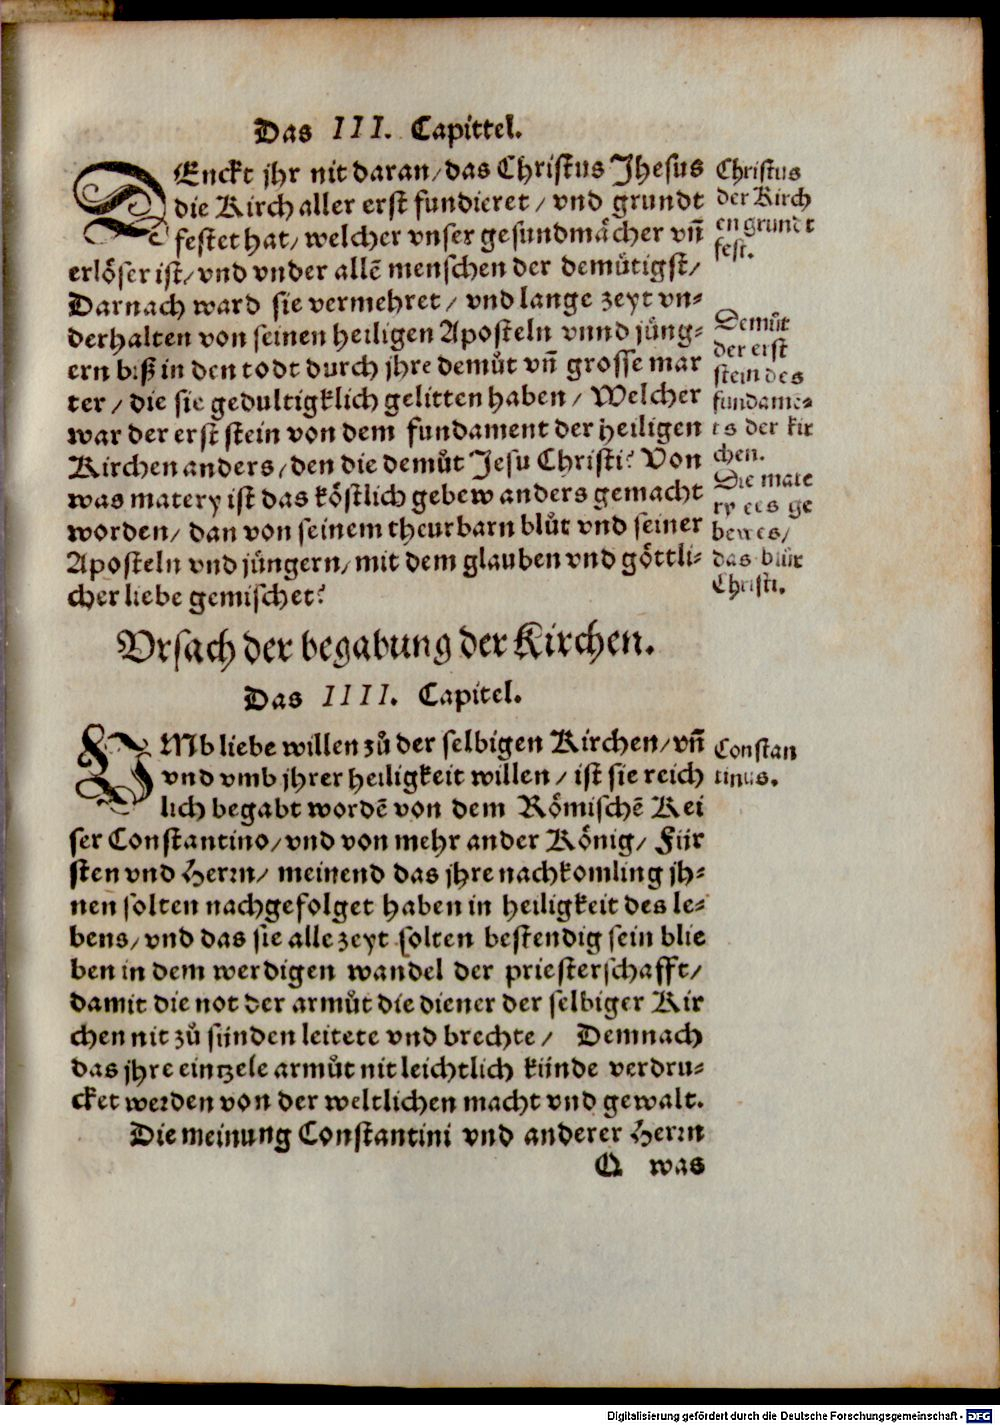 Das III. Capittel.
DEnckt jhr nit daran/ das Christus Jhesus
die Kirch aller erst fundieret / vnd grundt
festet hat/ welcher vnser gesundmächer vñ
erlöser ist/ vnd vnder allẽ menschen der demütigst/
Darnach ward sie vermehret / vnd lange zeyt vn⸗
derhalten von seinen heiligen Aposteln vnnd jüng⸗
ern biß in den todt durch jhre demůt vñ grosse mar
ter / die sie gedultigklich gelitten haben / Welcher
war der erst stein von dem fundament der heiligen
Kirchen anders/ den die demůt Jesu Christi? Von
was matery ist das köstlich gebew anders gemacht
worden/ dan von seinem theurbarn blůt vnd seiner
Aposteln vnd jüngern/ mit dem glauben vnd göttli⸗
cher liebe gemischet?
Christus
der Kirch
en grundt
fest.
Demůt
der erst
stein des
fundamẽ⸗
ts der kir
chen.
Die mate
ry des ge
bewes/
das blůt
Christi.
Vrsach der begabung der Kirchen.
Das IIII. Capitel.
VMb liebe willen zů der selbigen Kirchen/ vñ
vnd vmb jhrer heiligkeit willen / ist sie reich
lich begabt wordẽ von dem Römischẽ Kei
ser Constantino/ vnd von mehr ander König/ Für
sten vnd Herrn/ meinend das jhre nachkomling jh⸗
nen solten nachgefolget haben in heiligkeit des le⸗
bens/ vnd das sie alle zeyt solten bestendig sein blie
ben in dem werdigen wandel der priesterschafft/
damit die not der armůt die diener der selbiger Kir
chen nit zů sünden leitete vnd brechte / Demnach
das jhre eintzele armůt nit leichtlich künde verdru⸗
cket werden von der weltlichen macht vnd gewalt.
Die meinung Constantini vnd anderer Herrn
Constan
tinus.
Q was
Digitalisierung gefördert durch die Deutsche Forschungsgemeinschaft - DFG